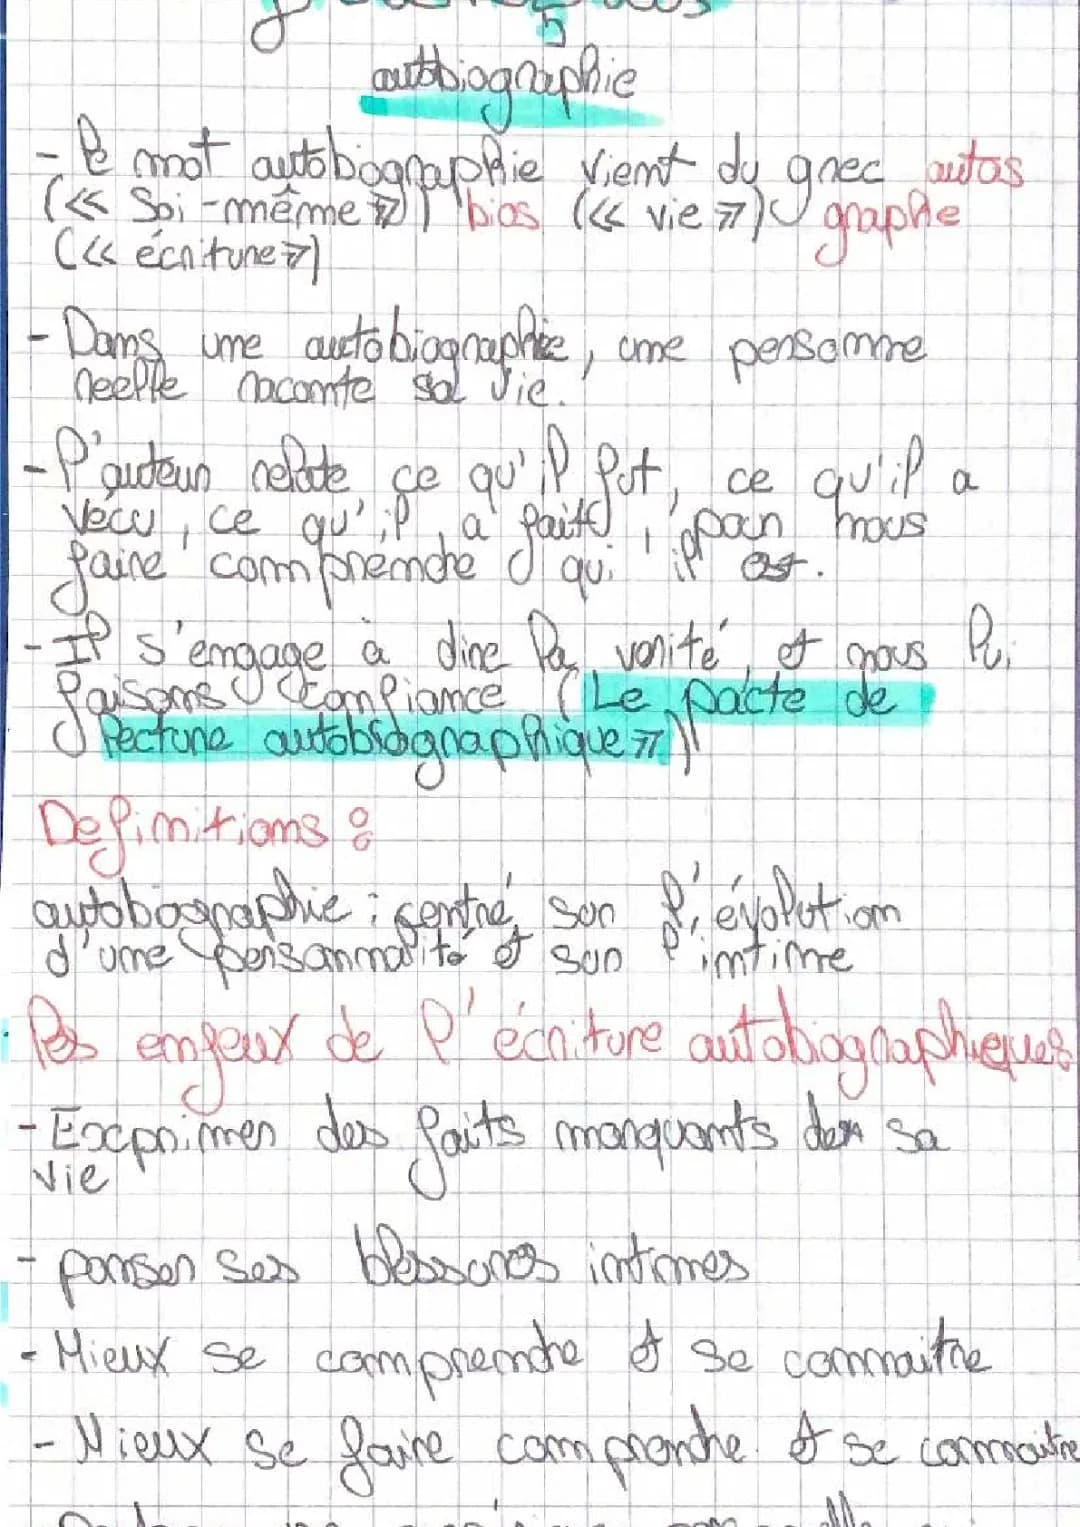 autobiographie
- Le mot autobiographie vient du grec autos
(<< Soi-même >>) bios (<< vie >>) graphe
(<< écriture >>)
- Dans une autobiographie, une personne
réelle raconte sa vie.
- l'auteur relate ce qu'il fut, ce qu'il a
vécu, ce qu'il a fait, pour nous
faire comprendre qui il est.
- Il s'engage à dire la vérité et nous lui
faisons confiance (Le pacte de
lecture autobiographique >>)
Definitions :
autobiographie : centré sur l'évolution
d'une personnalité et sur l'intime
les enjeux de l'écriture autobiographiques
- Exprimer des faits marquants de sa
vie
- panser ses blessures intimes
- Mieux se comprendre et se connaitre
- Mieux se faire comprendre et se connaitre